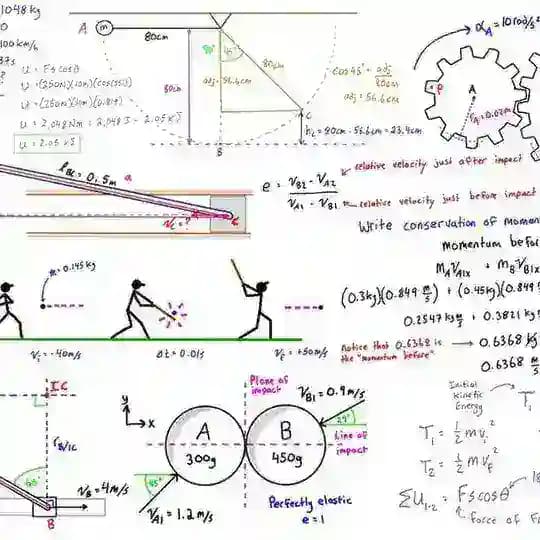 1048 kg
0
100 km/h
37s
?
U = F s cos θ
U = (250N)(10m)(cos(55))
U = (250N)(10m)(0.819)
U = 2,048 Nm = 2,048 J = 2.05 KJ
U = 2.05 KJ
A
m
80cm
90°
45°
80cm
80cm
adj = 56.6cm
C
B
cos 45° = adj/80cm
adj = 56.6cm
h₁ = 80cm - 56.6cm = 23.4cm
α_A = 10 rad/s²
P
A
r_A = 0.07m
l_BC = 0.5m
a
V_C = ?
C
e = (V_B2 - V_A2)/(V_A1 - V_B1)
relative velocity just after impact
relative velocity just before impact
Write conservation of momen
momentum befor
m_A V_A1x + m_B V_B1x
(0.3kg)(0.849 m/s) + (0.45kg)(0.849
0.2547 kg m/s + 0.3821 kg
Notice that 0.6368 is
the "momentum before"
0.6368 kg
0.6368 m/s
m = 0.145kg
V₁ = -40m/s
Δt = 0.01s
V_f = +50m/s
IC
r_B/IC
60°
V_B = 4m/s
B
y
x
A
300g
B
450g
Plane of
impact
V_B1 = 0.9m/s
29°
Line of
impact
45°
V_A1 = 1.2 m/s
Perfectly elastic
e = 1
Initial
Kinetic
Energy
T₁
T₁ = ½ m v₁²
T₂ = ½ m v_f²
ΣU₁₋₂ = F s cos θ
force of F